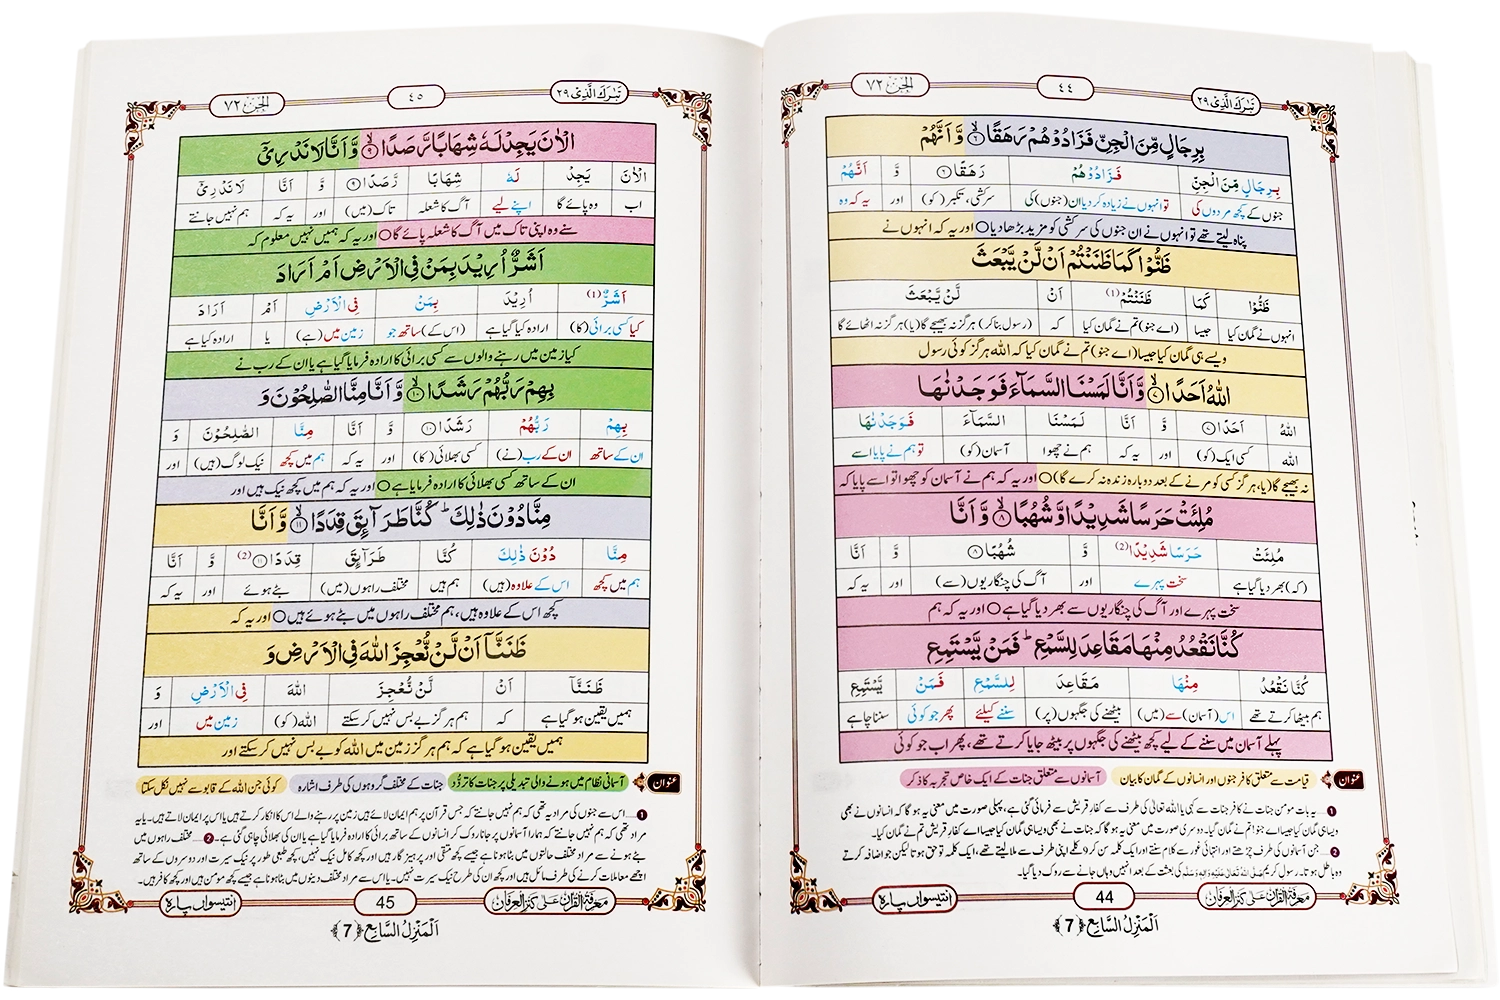 تبٰرك الَّذِیْ ٢٩
٤٤
الجن ٧٢
بِرِجَالٍ مِّنَ الْجِنِّ فَزَادُوْهُمْ رَهَقًا ۙ۶ وَّ اَنَّهُمْ
بِرِجَالٍ مِّنَ الْجِنِّ فَزَادُوْهُمْ رَهَقًا ۶ وَّ اَنَّهُمْ
جنوں کے کچھ مردوں کی تو انہوں نے زیادہ کردیا ان (جنوں) کی سرکشی، تکبر (کو) اور یہ کہ وہ
پناہ لیتے تھے تو انہوں نے ان جنوں کی سرکشی کو مزید بڑھا دیا ○ اور یہ کہ انہوں نے
ظَنُّوْا كَمَا ظَنَنْتُمْ اَنْ لَّنْ یَّبْعَثَ
ظَنُّوْا كَمَا ظَنَنْتُمْ (1) اَنْ لَّنْ یَّبْعَثَ
انہوں نے گمان کیا جیسا (اے جنو) تم نے گمان کیا کہ (رسول بنا کر) ہرگز نہ بھیجے گا (یا) ہرگز نہ اٹھائے گا
ویسے ہی گمان کیا جیسا (اے جنو) تم نے گمان کیا کہ اللہ ہرگز کوئی رسول
اللّٰهُ اَحَدًا ۙ۷ وَّ اَنَّا لَمَسْنَا السَّمَآءَ فَوَجَدْنٰهَا
اللّٰهُ اَحَدًا ۷ وَّ اَنَّا لَمَسْنَا السَّمَآءَ فَوَجَدْنٰهَا
اللہ کسی ایک (کو) اور یہ کہ ہم نے چھوا آسمان (کو) تو ہم نے پایا اسے
نہ بھیجے گا (یا، ہرگز کسی کو مرنے کے بعد دوبارہ زندہ نہ کرے گا) ○ اور یہ کہ ہم نے آسمان کو چھوا تو اسے پایا کہ
مُلِئَتْ حَرَسًا شَدِیْدًا وَّ شُهُبًا ۙ۸ وَّ اَنَّا
مُلِئَتْ حَرَسًا شَدِیْدًا (2) وَّ شُهُبًا ۸ وَّ اَنَّا
(کہ) بھر دیا گیا ہے سخت پہرے اور آگ کی چنگاریوں (سے) اور یہ کہ
سخت پہرے اور آگ کی چنگاریوں سے بھر دیا گیا ہے ○ اور یہ کہ ہم
كُنَّا نَقْعُدُ مِنْهَا مَقَاعِدَ لِلسَّمْعِ ؕ فَمَنْ یَّسْتَمِعِ
كُنَّا نَقْعُدُ مِنْهَا مَقَاعِدَ لِلسَّمْعِ فَمَنْ یَّسْتَمِعِ
ہم بیٹھا کرتے تھے اس (آسمان) سے (میں) بیٹھنے کی جگہوں (پر) سننے کیلئے پھر جو کوئی سننا چاہے
پہلے آسمان میں سننے کے لیے کچھ بیٹھنے کی جگہوں پر بیٹھ جایا کرتے تھے، پھر اب جو کوئی
عنوان قیامت سے متعلق کافر جنوں اور انسانوں کے گمان کا بیان آسمانوں سے متعلق جنات کے ایک خاص تجربہ کا ذکر
❶ ... یہ بات مومن جنات نے کافر جنات سے کہی یا اللہ تعالیٰ کی طرف سے کفارِ قریش سے فرمائی گئی ہے، پہلی صورت میں معنی یہ ہو گا کہ انسانوں نے بھی
ویسا ہی گمان کیا جیسا اے جنو! تم نے گمان کیا۔ دوسری صورت میں معنی یہ ہو گا کہ جنات نے بھی ویسا ہی گمان کیا جیسا اے کفار قریش تم نے گمان کیا۔
❷ ... جن آسمانوں کی طرف چڑھتے اور انتہائی غور سے کلام سنتے اور ایک کلمہ سن کر 9 کلمے اپنی طرف سے ملا لیتے تھے، ایک کلمہ تو حق ہوتا لیکن جو اضافہ کرتے
وہ باطل ہوتا۔ رسول کریم صَلَّى اللهُ تَعَالٰى عَلَيْهِ وَاٰلِهٖ وَسَلَّم کی بعثت کے بعد انہیں وہاں جانے سے روک دیا گیا۔
معرفۃ القرآن علٰی کنز العرفان
44
انتیسواں پارہ
اَلْمَنْزِلُ السَّابِع ﴿7﴾
تبٰرك الَّذِیْ ٢٩
٤٥
الجن ٧٢
الْاٰنَ یَجِدْ لَهٗ شِهَابًا رَّصَدًا ۙ۹ وَّ اَنَّا لَا نَدْرِیْۤ
الْاٰنَ یَجِدْ لَهٗ شِهَابًا رَّصَدًا ۹ وَّ اَنَّا لَا نَدْرِیْۤ
اب وہ پائے گا اپنے لیے آگ کا شعلہ تاک (میں) اور یہ کہ ہم نہیں جانتے
سنے وہ اپنی تاک میں آگ کا شعلہ پائے گا ○ اور یہ کہ ہمیں نہیں معلوم کہ
اَشَرٌّ اُرِیْدَ بِمَنْ فِی الْاَرْضِ اَمْ اَرَادَ
اَشَرٌّ (1) اُرِیْدَ بِمَنْ فِی الْاَرْضِ اَمْ اَرَادَ
کیا کسی برائی (کا) ارادہ کیا گیا ہے (اس کے) ساتھ جو زمین میں (ہے) یا ارادہ کیا ہے
کیا زمین میں رہنے والوں سے کسی برائی کا ارادہ فرمایا گیا ہے یا ان کے رب نے
بِهِمْ رَبُّهُمْ رَشَدًا ۙ۱۰ وَّ اَنَّا مِنَّا الصّٰلِحُوْنَ وَ
بِهِمْ رَبُّهُمْ رَشَدًا ۱۰ وَّ اَنَّا مِنَّا الصّٰلِحُوْنَ وَ
ان کے ساتھ ان کے رب (نے) کسی بھلائی (کا) اور یہ کہ ہم میں کچھ نیک لوگ (ہیں) اور
ان کے ساتھ کسی بھلائی کا ارادہ فرمایا ہے ○ اور یہ کہ ہم میں کچھ نیک ہیں اور
مِنَّا دُوْنَ ذٰلِكَ ؕ كُنَّا طَرَآىٕقَ قِدَدًا ۙ۱۱ وَّ اَنَّا
مِنَّا دُوْنَ ذٰلِكَ كُنَّا طَرَآىٕقَ قِدَدًا ۱۱ (2) وَّ اَنَّا
ہم میں کچھ اس کے علاوہ (ہیں) ہم ہیں مختلف راہوں (میں) بٹے ہوئے اور یہ کہ
کچھ اس کے علاوہ ہیں، ہم مختلف راہوں میں بٹے ہوئے ہیں ○ اور یہ کہ
ظَنَنَّاۤ اَنْ لَّنْ نُّعْجِزَ اللّٰهَ فِی الْاَرْضِ وَ
ظَنَنَّاۤ اَنْ لَّنْ نُّعْجِزَ اللّٰهَ فِی الْاَرْضِ وَ
ہمیں یقین ہو گیا ہے کہ ہم ہرگز بے بس نہیں کر سکتے اللہ (کو) زمین میں اور
ہمیں یقین ہو گیا ہے کہ ہم ہرگز زمین میں اللہ کو بے بس نہیں کر سکتے اور
عنوان آسمانی نظام میں ہونے والی تبدیلی پر جنات کا تردُّد جنات کے مختلف گروہوں کی طرف اشارہ کوئی جن اللہ کے قابو سے نہیں نکل سکتا
❶ ... اس سے جنوں کی مراد یہ تھی کہ ہم نہیں جانتے کہ جس قرآن پر ہم ایمان لائے ہیں زمین پر رہنے والے اس کا انکار کرتے ہیں یا اس پر ایمان لاتے ہیں۔ یا یہ
مراد تھی کہ ہم نہیں جانتے کہ ہمارا آسمانوں پر جانا روک کر انسانوں کے ساتھ برائی کا ارادہ فرمایا گیا ہے یا ان کی بھلائی چاہی گئی ہے۔ ❷ ... مختلف راہوں میں
بٹے ہونے سے مراد مختلف حالتوں میں بٹا ہونا ہے جیسے کچھ متقی اور پرہیز گار ہیں اور کچھ کامل نیک نہیں، کچھ طبعی طور پر نیک سیرت اور دوسروں کے ساتھ
اچھے معاملات کرنے کی طرف مائل ہیں اور کچھ ان کی طرح نیک سیرت نہیں۔ یا اس سے مراد مختلف دینوں میں بٹا ہونا ہے جیسے کچھ مومن ہیں اور کچھ کافر ہیں۔
معرفۃ القرآن علٰی کنز العرفان
45
انتیسواں پارہ
اَلْمَنْزِلُ السَّابِع ﴿7﴾